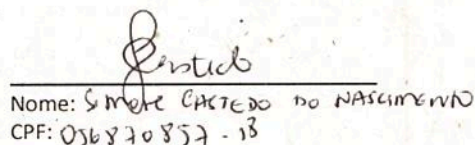 Castedo
Nome: Simone CASTEDO DO NASCIMENTO
CPF: 056870857-13